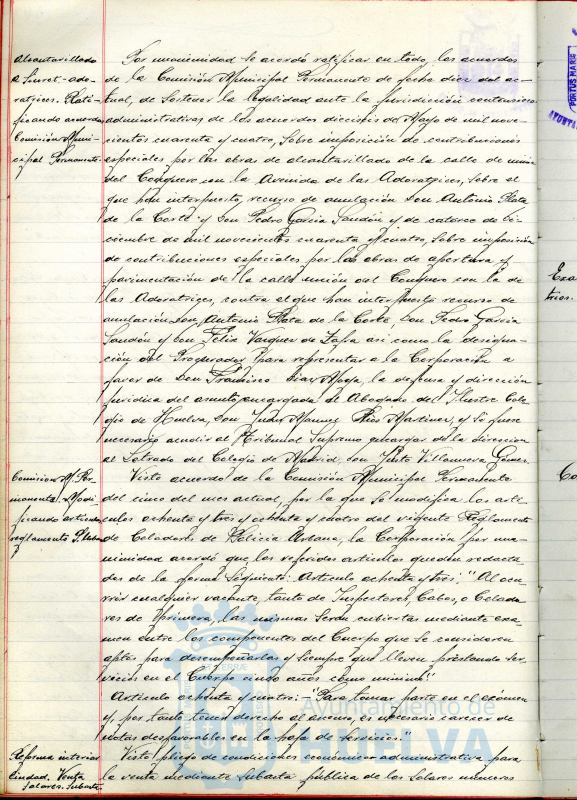 Alcantarillado
a Siurot-Ado-
ratrices. Rati-
ficando acuerdo
Comisión Muni-
cipal Permanente.
Por unanimidad se acordó ratificar en todo, los acuerdos
de la Comisión Municipal Permanente de fecha diez del ac-
tual, de sostener la legalidad ante la Jurisdicción contencioso
administrativas de los acuerdos dieciséis de Mayo de mil nove-
cientos cuarenta y cuatro, sobre imposición de contribuciones
especiales, por las obras de alcantarillado de la calle de unión
del Conquero con la Avenida de las Adoratrices, sobre el
que han interpuesto, recurso de anulación Don Antonio Plata
de la Corte y Don Pedro García Jandón y de catorce de Di-
ciembre de mil novecientos cuarenta y cuatro, sobre imposición
de contribuciones especiales por las obras de apertura y
pavimentación de la calle unión del Conquero con la de
las Adoratrices, contra el que han interpuesto recurso de
anulación Don Antonio Plata de la Corte, Don Pedro García
Jandón y Don Félix Vazquez de Zafra así como la designa-
ción del Procurador para representar a la Corporación a
favor de Don Francisco Díaz Moya, la defensa y dirección
jurídica del asunto encargada al Abogado del Ilustre Cole-
gio de Huelva, Don Manuel Ríos Martínez, y si fuese
necesario acudir al Tribunal Supremo encargar de la dirección
al Letrado del Colegio de Madrid, Don Justo Villanueva Gómez.
Comisión M. Per-
manente. Modi-
ficando artículos
reglamento P. Urbana
Visto acuerdo de la Comisión Municipal Permanente
del cinco del mes actual, por la que se modifica los artí-
culos ochenta y tres y ochenta y cuatro del vigente Reglamento
de Celadores de Policia Urbana, la Corporación por una-
nimidad acordó que los referidos artículos queden redacta-
dos de la forma siguiente: Artículo ochenta y tres: "Al ocu-
rrir cualquier vacante, tanto de Inspectores, Cabos, o Celado-
res de primera, las mismas serán cubiertas mediante exa-
men entre los componentes del Cuerpo que se consideren
aptos para desempeñarlas y siempre que lleven prestando ser-
vicios en el Cuerpo cinco años como mínimo."
Artículo ochenta y cuatro: - "Para tomar parte en el examen
y, por tanto tener derecho al ascenso, es necesario carecer de
notas desfavorables en la hoja de servicios."
Reforma interior
Ciudad. Venta
solares. Subasta
Visto pliego de condiciones económico administrativa para
la venta mediante subasta pública de los solares números
Ayuntamiento de
HUELVA